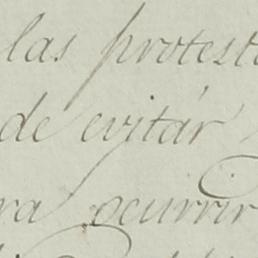 las protest
de evitár
ra ocurrir